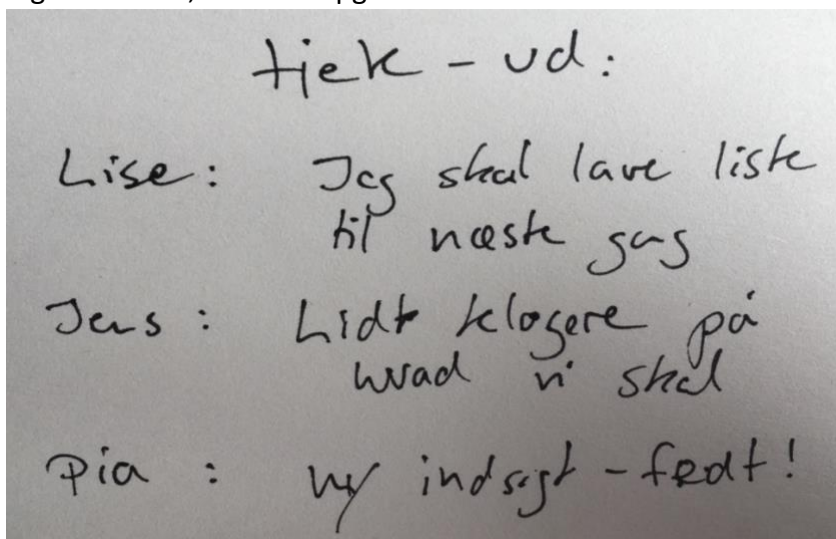 tjek - ud:
Lise: Jeg skal lave liste
til næste gang
Jens: Lidt klogere på
hvad vi skal
Pia : ny indsigt - fedt!